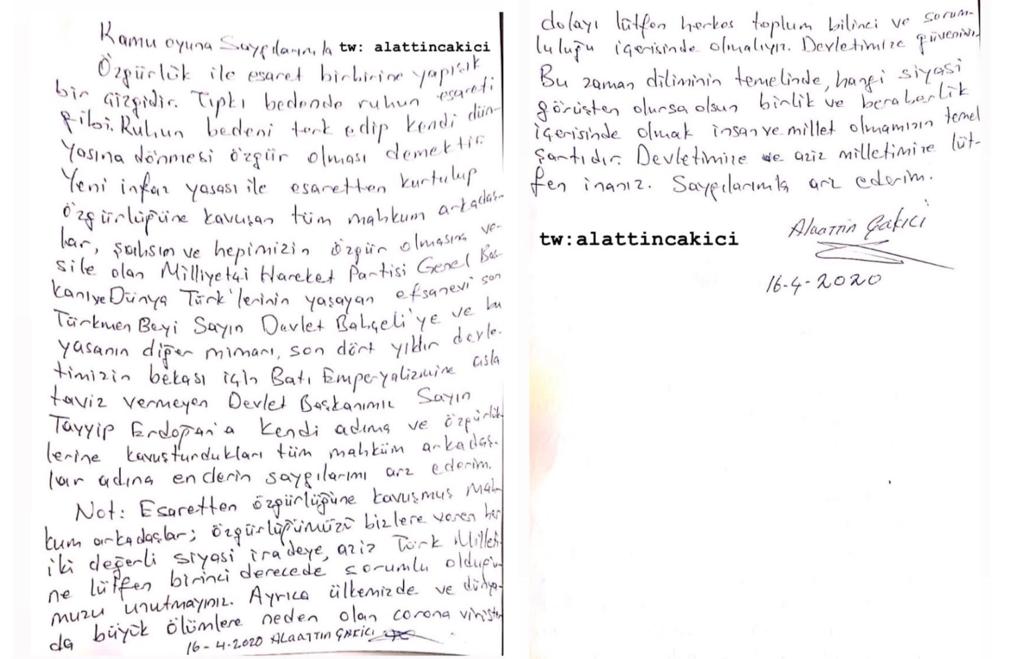 Kamu oyuna Saygılarımla tw: alattincakici
Özgürlük ile esaret birbirine yapışık
bir çizgidir. Tıpkı bedende ruhun esareti
gibi. Ruhun bedeni terk edip kendi dün-
yasına dönmesi özgür olması demektir.
Yeni infaz yasası ile esaretten kurtulup
özgürlüğüne kavuşan tüm mahkum arkadaş-
lar, şahsım ve hepimizin özgür olmasına ve-
sile olan Milliyetçi Hareket Partisi Genel Baş-
kanı ve Dünya Türk'lerinin yaşayan efsanevi son
Türkmen Beyi Sayın Devlet Bahçeli'ye ve bu
yasanın diğer mimarı, son dört yıldır devle-
timizin bekası için Batı Emperyalizmine asla
taviz vermeyen Devlet Başkanımız Sayın
Tayyip Erdoğan'a kendi adıma ve özgürlük-
lerine kavuşturdukları tüm mahküm arkadaş-
lar adına en derin saygılarımı arz ederim.
Not: Esaretten özgürlüğüne kavuşmuş mah-
kum arkadaşlar; özgürlüğümüzü bizlere veren her
iki değerli siyasi iradeye, aziz Türk Milleti-
ne lütfen birinci derecede sorumlu olduğu-
muzu unutmayınız. Ayrıca ülkemizde ve dünya-
da büyük ölümlere neden olan corona virüsten
16-4-2020 ALAATTIN ÇAKICI
dolayı lütfen herkes toplum bilinci ve sorum-
luluğu içerisinde olmalıyız. Devletimize güveniniz.
Bu zaman diliminin temelinde, hangi siyasi
görüşten olursa olsun birlik ve beraberlik
içerisinde olmak insan ve millet olmamızın temel
şartıdır. Devletimize ve aziz milletimize lüt-
fen inanız. Saygılarımla arz ederim.
tw:alattincakici
Alaattin Çakıcı
16-4-2020